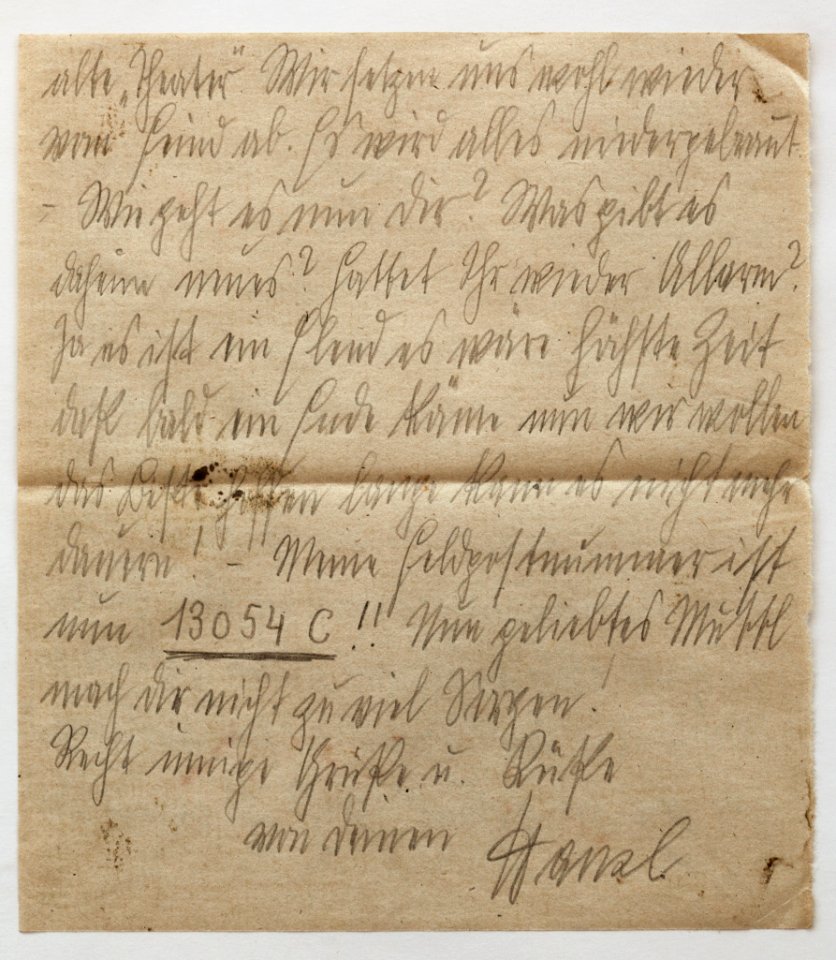 alte „Theater“. Wir setzen uns wohl wieder
vom Feind ab. Es wird alles niedergebrannt
- Wie geht es nun dir? Was gibt es
daheim neues? Hattet Ihr wieder Allarm?
Ja es ist ein Elend es wäre höchste Zeit
daß bald ein Ende käme nun wir wollen
das Beste hoffen lange kann es nicht mehr
dauern! - Meine Feldpostnummer ist
nun 13054 C!! Nun geliebtes
mach dir nicht zu viel Sorgen!
Recht innige Grüße u. Küße
von deinen Hansl.